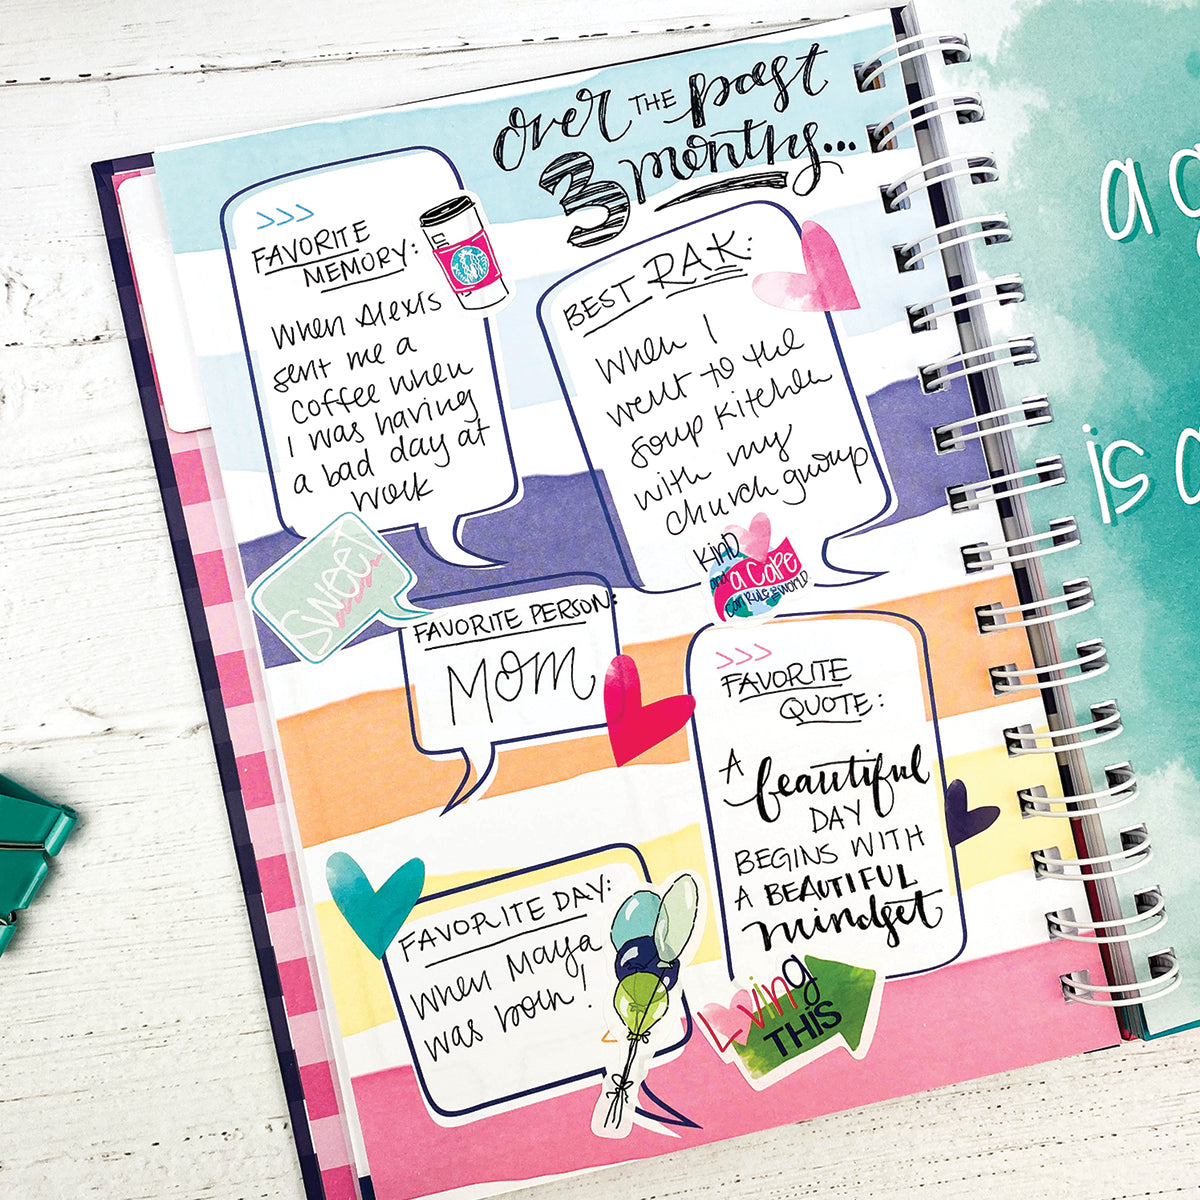 over THE past
3 months...
>>>
FAVORITE
MEMORY:
When Alexis
sent me a
coffee when
I was having
a bad day at
work
BEST RAK:
When I
went to the
soup kitchen
with my
church group
SWEET
KIND
and a CAPE
can RULE the WORLD
FAVORITE PERSON:
MOM
>>>
FAVORITE
QUOTE:
A beautiful
DAY
BEGINS WITH
A BEAUTIFUL
mindset
FAVORITE DAY:
When Maya
was born!
Loving
THIS
a
is